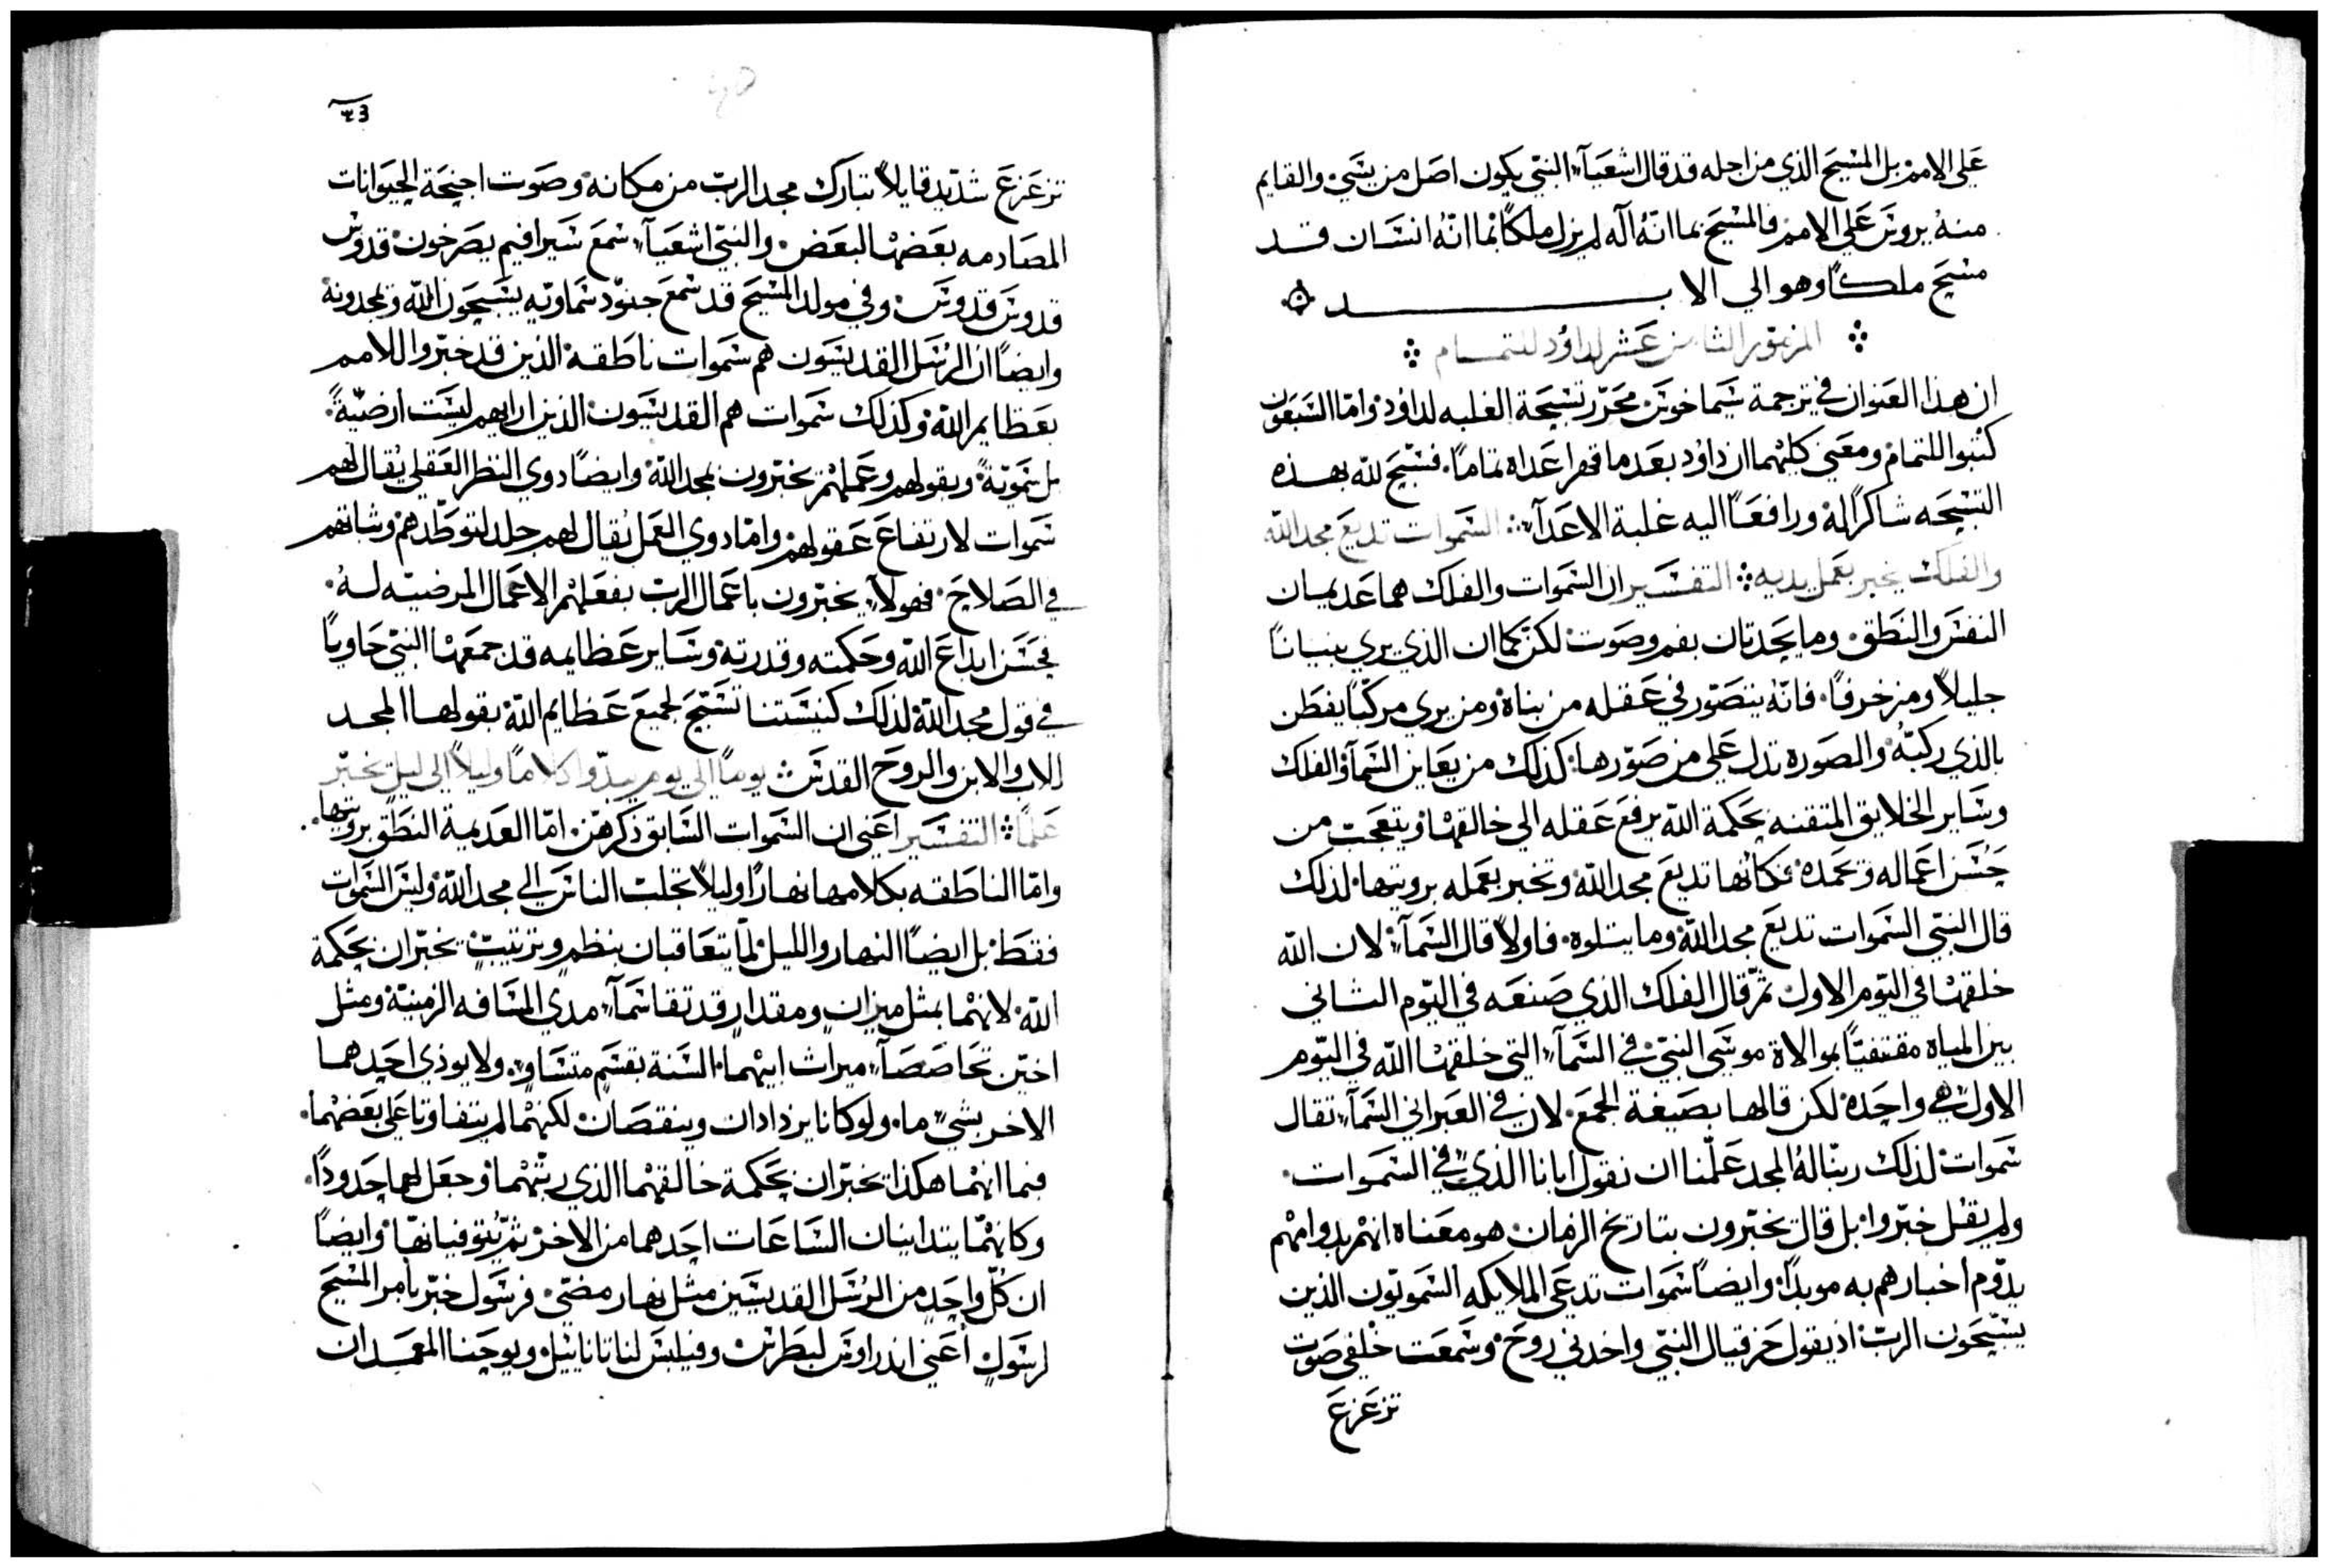 علي الامم بل المسيح الذي من اجله قد قال اشعيآء النبي يكون اصل من يسي والقايم
منه يروس علي الامم فالمسيح بما انه اله لم يزل ملكًا بما انه انسان قد
مسح ملكًا وهو الي الابد
المزمور الثامن عشر لداود للتمام
ان هذا العنوان في ترجمة سيماخوس محرّر تسبحة الغلبه لداود واما السبعون
كتبوا للتمام ومعني كليهما ان داود بعدما قهر اعداه تمامًا فسبّح لله بهذه
التسبحه شاكرًا له ورافعًا اليه غلبة الاعدآء السموات تديع مجد الله
والفلك يخبر بعمل يديه التفسير ان السموات والفلك هما عديمان
النفس والنطق وما يحدتان بفم وصوت لكن كما ان الذي يري بنيانًا
جليلاً ومزخرفًا فانه يتصوّر في عقله من بناه ومن يري مركبًا يفطن
بالذي ركبّه والصوره تدل علي من صوّرها كذلك من يعاين السمآ والفلك
وساير الخلايق المتقنه بحكمة الله يرفع عقله الي خالقها ويتعجب من
حسن اعماله ويحمده فكانها تديع مجد الله وتخبر بعمله برويتها لذلك
قال النبي السموات تديع مجد الله وما يتلوه فاولاً قال السمآء لان الله
خلقها في اليوم الاول ثم قال الفلك الذي صنعه في اليوم الثاني
بين المياه مقتفيًا بموالاة موسي النبي في السمآء التي خلقها الله في اليوم
الاول هي واحده لكن قالها بصيغة الجمع لان في العبراني السمآء تقال
سموات لذلك ربنا له المجد علّمنا ان نقول ابانا الذي في السموات
ولم يقل خبّروا بل قال يخبّرون بتاريخ الزمان هو معناه انهم بدوامهم
يدوم اخبارهم به موبدًا وايضًا سموات تدعي الملايكه السمويّون الذين
يسبّحون الربّ اذ يقول حزقيال النبي واخدني روح وسمعت خلفي صوت
تزعزع
٤٣
تزعزع شديد قايلاً تبارك مجد الرب من مكانه وصوت اجنحة الحيوانات
المصادمه بعضها البعض والنبي اشعيآء سمع سيرافيم يصرخون قدوس
قدوس قدوس وفي مولد المسيح قد سمع جنود سماويه يسبحون الله ويمجدونه
وايضًا ان الرسل القديسون هم سموات ناطقة الذين قد خبّروا للامم
بعظايم الله وكذلك سموات هم القديسون الذين ارايهم ليست أرضيّةً
بل سمويّةً وبقولهم وعملهم يخبّرون بمجد الله وايضًا دوي النظر العقلي يُقال لهم
سموات لارتفاع عقولهم وامّا دوي العمل يُقال لهم جلد لتوطّدهم وثباتهم
في الصلاح فهولآء يخبّرون باعمال الرب بفعلهم الاعمال المرضيّه له
فحسن ابداع الله وحكمته وقدرته وساير عظايمه قد جمعها النبي حاويًا
في قول مجد الله لذلك كنيستنا تسبّح لجميع عظايم الله بقولها المجد
للاب والابن والروح القدس يومًا الي يوم يبدّوا كلامًا وليلاً الي ليل تخبّر
علمًا التفسير اعني ان السموات السابق ذكرهن امّا العديمة النطق برويتها
وامّا الناطقه بكلامها نهارًا وليلاً تجلب الناس الي مجد الله وليس السموات
فقط بل ايضًا النهار والليل لمّا يتعاقبان بنظم وترتيب يخبّران بحكمة
الله لانهما بمثل ميزان ومقدار قد تقاسمآء مدي المسافه الزمنيّة ومثل
اختين تحاصصآء ميراث ابيهما السنة بقسم متساوٍ ولا يوذي احدهما
الاخر بشيء ما ولو كانا يزدادان وينقصان لكنهما لم يتفاوتا علي بعضهما
فبما انهما هكذا يخبّران بحكمة خالقهما الذي رتّبهما وجعل لهما حدودًا
وكانهما يتداينان الساعات احدهما من الاخر ثم يُتوفيانها وايضًا
ان كلّ واحد من الرسل القديسين مثل نهار مضيّ فرسول خبّر بأمر المسيح
لرسول أعني اندراوس لبطرس وفيلبس لناتانائيل ويوحنا المعمدان